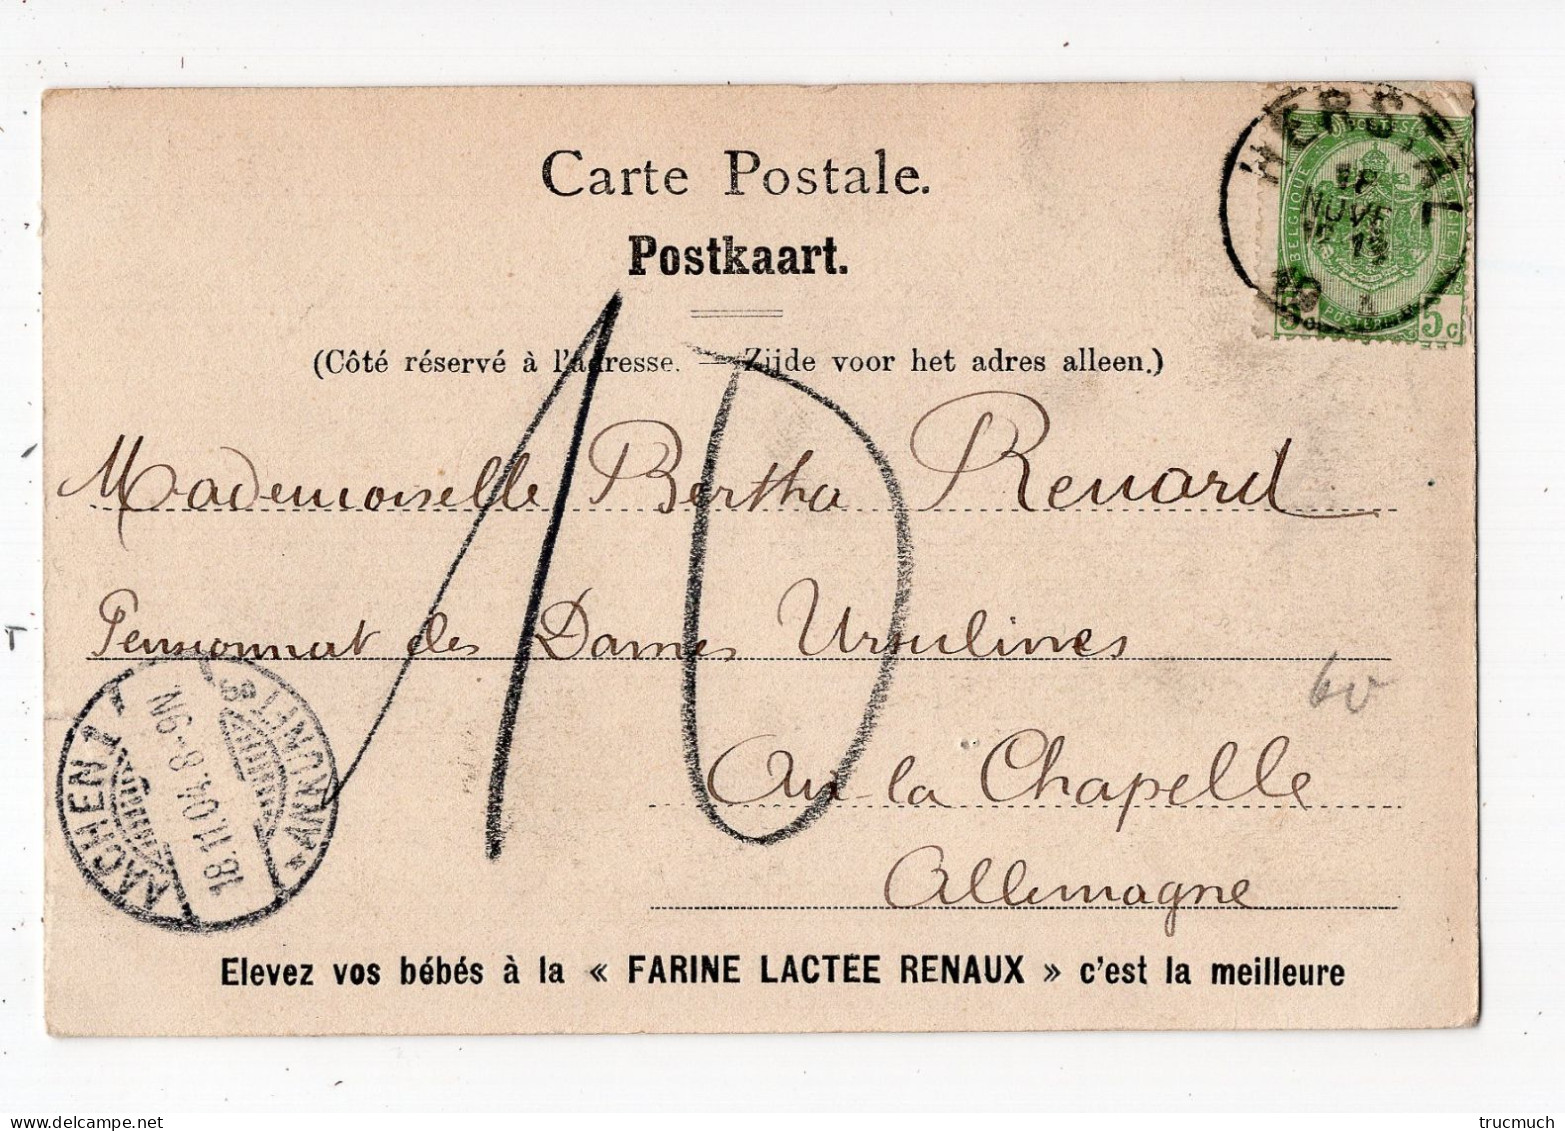 Carte Postale.
Postkaart.
(Côté réservé à l'adresse. — Zijde voor het adres alleen.)
HERSTAL
18
NOVE
19
BELGIQUE
BELGIE
5c 5c
10
Mademoiselle Bertha Renard
Pensionnat des Dames Ursulines
Aix la Chapelle
Allemagne
60
AACHEN 1
18.11.04. 8-9N.
*ANKUNFT*
Elevez vos bébés à la « FARINE LACTÉE RENAUX » c'est la meilleure
trucmuch